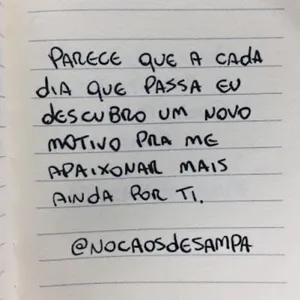 PARECE QUE A CADA
dIA QUE PASSA EU
dESCUBRO UM NOVO
MOTIVO PRA ME
APAIXONAR MAIS
AINDA POR TI.
@NOCAOSdESAMPA